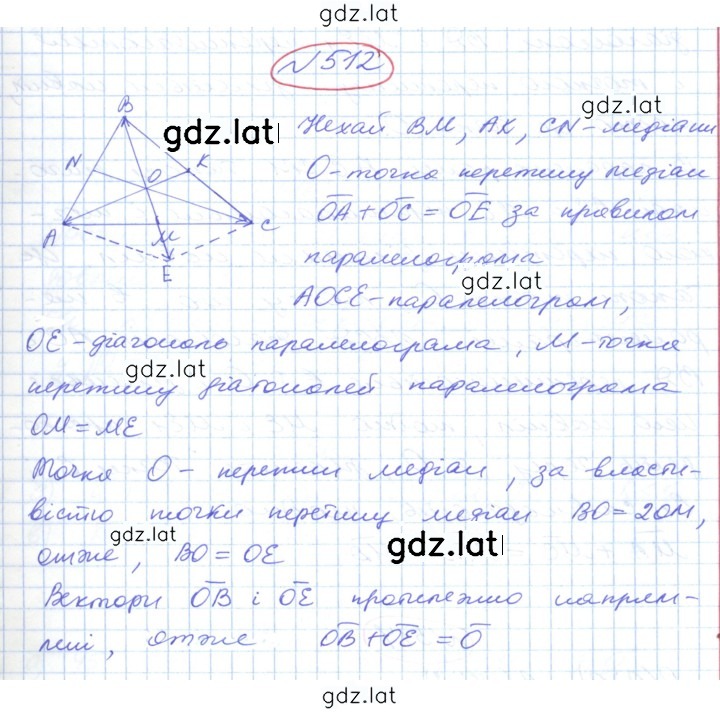 gdz.lat
№512
gdz.lat
B
gdz.lat
Нехай BM, AK, CN - медіани
N
K
O
О - точка перетину медіан
OA + OC = OE за правилом
A
M
C
паралелограма
E
gdz.lat
AOCE - паралелограм,
OE - діагональ паралелограма, M - точка
gdz.lat
перетину діагоналей паралелограма
OM = ME
Точка O - перетин медіан, за власти-
вістю точки перетину медіан BO = 2OM,
gdz.lat
отже, BO = OE
gdz.lat
Вектори OB і OE протилежно напрям-
лені, отже OB + OE = O
gdz.lat